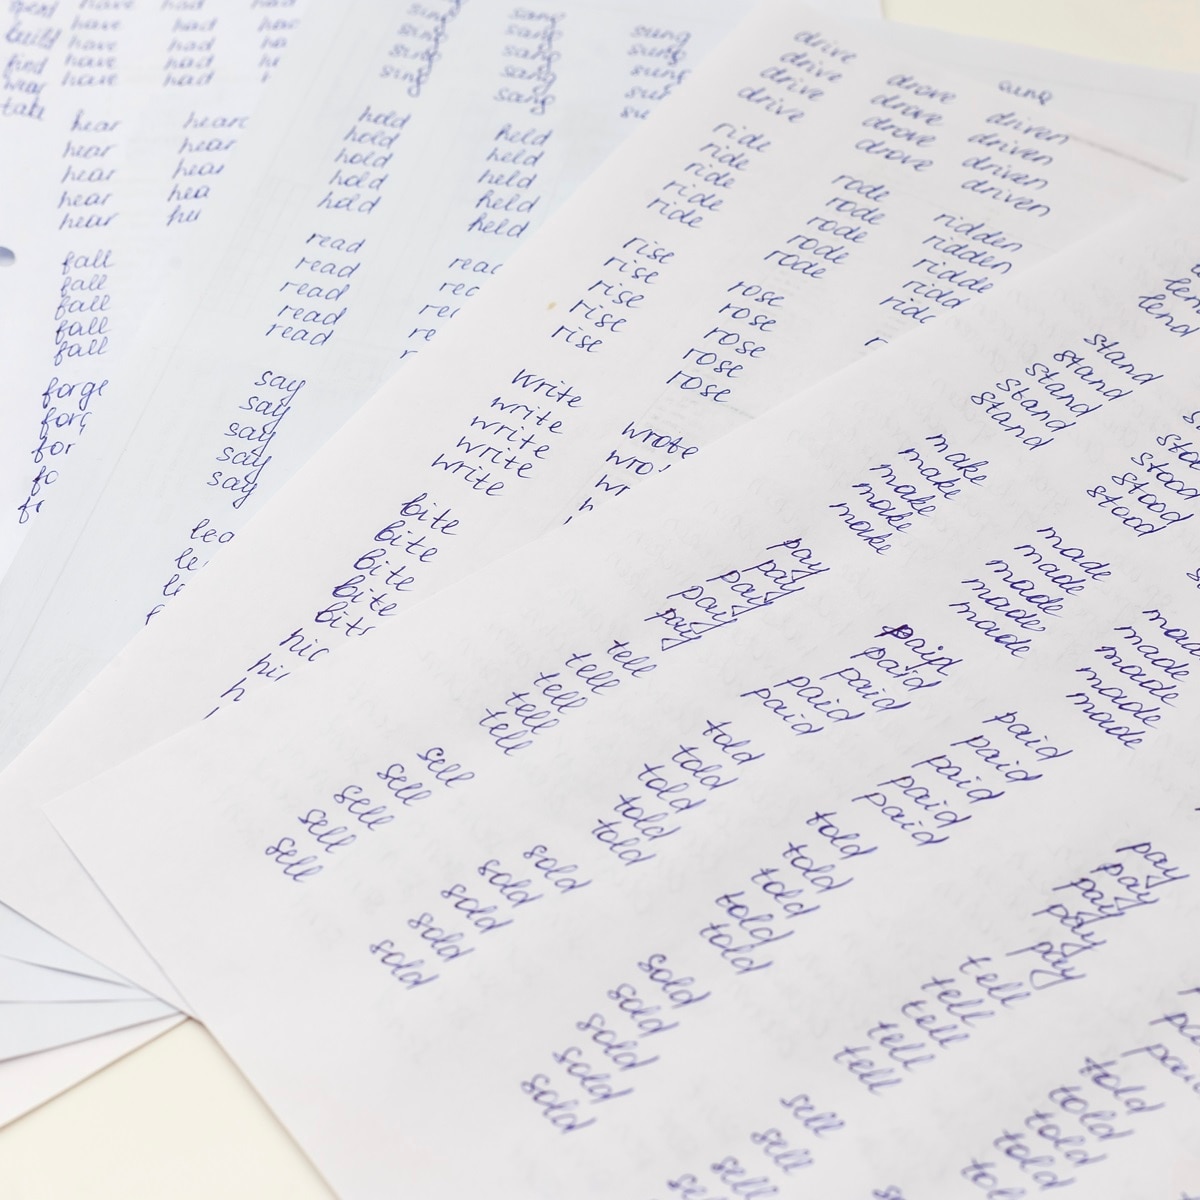 have had
build have had
find have had
wear have had
take
hear heard
hear hear
hear hear
hear
hear
fall
fall
fall
fall
fall
sing sang sung
sing sang sung
sing sang sung
sing sang
sang
hold held
hold held
hold held
hold held
hold held
read
read
read
read
read
say
say
say
say
say
sung
drive drove driven
drive drove driven
drive drove driven
drive drove driven
ride rode ridden
ride rode ridden
ride rode
ride rode
ride rode
rise rose
rise rose
rise rose
rise rose
rise rose
write wrote
write
write
write
write
bite
bite
bite
bite
lend
stand
stand
stand stood
stand stood
stand stood
make made made
make made made
make made made
make made made
make made made
pay paid paid
pay paid paid
pay paid paid
pay paid paid
pay paid paid
tell told told
tell told told
tell told told
tell told told
tell told told
sell sold sold
sell sold sold
sell sold sold
sell sold sold
sell sold sold
pay
pay
pay
pay
pay
tell told
tell told
tell told
tell told
tell
sell
sell
sell